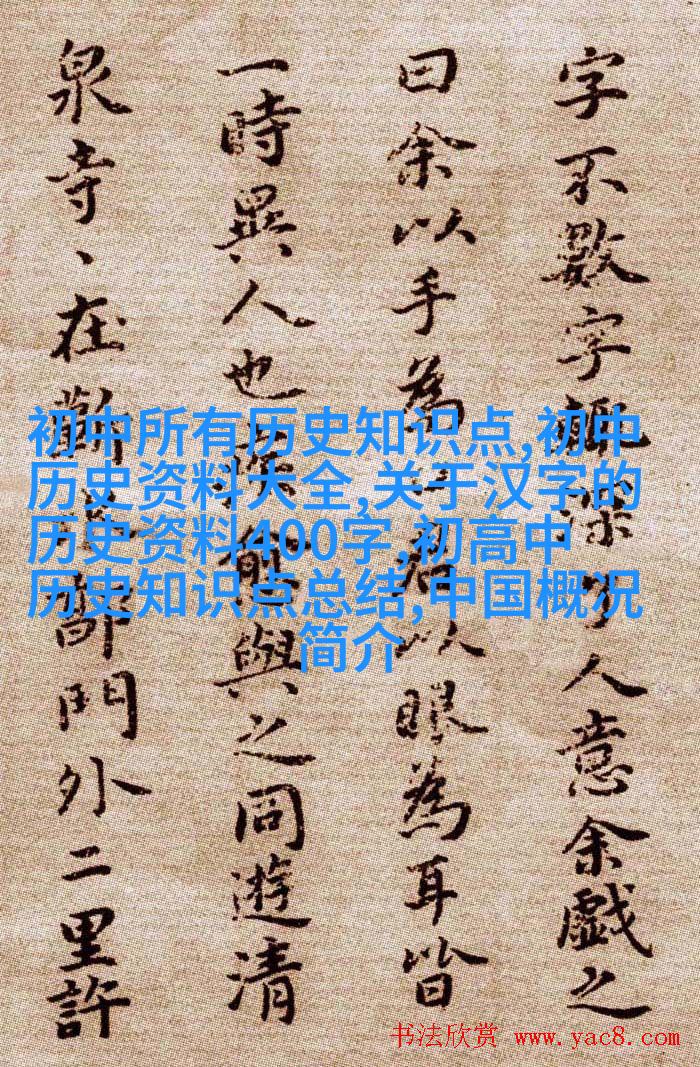 字不數字輒深了人意余戲之
曰余以手為君以眼為耳皆
一時異人也疾愈與之同遊清
泉寺、在蘄水郭門外二里許
初中所有历史知识点,初中
历史资料大全,关于汉字的
历史资料400字,初高中
历史知识点总结,中国概况
简介
书法欣赏 www.yac8.com